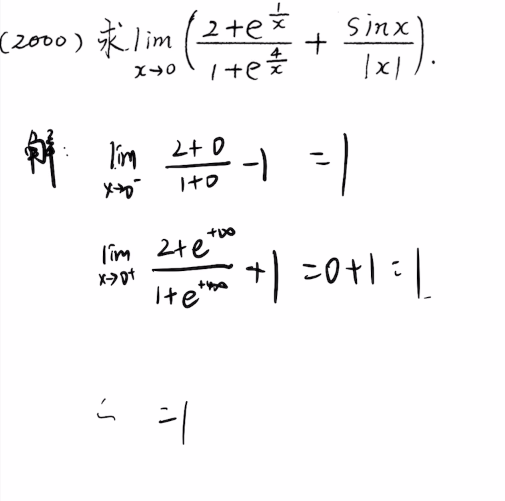 (2000) 求 lim x→0 ( (2+e^(1/x))/(1+e^(4/x)) + sinx/|x| ).
解: lim x→0⁻ (2+0)/(1+0) -1 =1
lim x→0⁺ (2+e^(+∞))/(1+e^(+∞)) +1 =0+1=1
=1